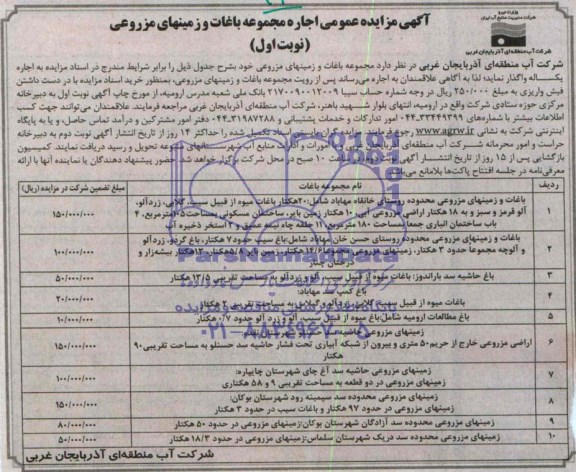 آگهی مزایده عمومی اجاره مجموعه باغات و زمینهای مزروعی
(نوبت اول)
شرکت آب منطقه‌ای آذربایجان غربی
شرکت آب منطقه‌ای آذربایجان غربی در نظر دارد مجموعه باغات و زمینهای مزروعی خود بشرح جدول ذیل را برابر شرایط مندرج در اسناد مزایده به اجاره
یکساله واگذار نماید؛ لذا به آگاهی علاقمندان به اجاره می‌رساند پس از رویت مجموعه باغات و زمینهای مزروعی، بمنظور خرید اسناد مزایده با در دست داشتن
فیش واریزی به مبلغ ۲۵۰/۰۰۰ ریال در وجه شماره حساب سیبا ۲۱۷۰۰۹۰۰۱۲۰۰۹ بانک ملی شعبه مدرس ارومیه، از مورخ چاپ آگهی نوبت اول به دبیرخانه
مرکزی حوزه ستادی شرکت واقع در ارومیه، انتهای بلوار شهید باهنر، شرکت آب منطقه‌ای آذربایجان غربی مراجعه فرمایند. علاقمندان می‌توانند جهت کسب
اطلاعات بیشتر با شماره‌های ۰۴۴-۳۳۴۴۹۳۹۹ امور تدارکات و خدمات پشتیبانی و ۰۴۴-۳۱۹۸۷۲۸۸ دفتر امور مشترکین و درآمد تماس حاصل، و یا به پایگاه
اینترنتی شرکت به نشانی www.agrw.ir رجوع فرمایند. اسناد تکمیل شده را حداکثر ۱۴ روز از تاریخ انتشار آگهی نوبت دوم به دبیرخانه
حراست و امور محرمانه شرکت آب منطقه‌ای آذربایجان غربی و منابع آب شهرستانهای تحویل و رسید دریافت نمایند. کمیسیون
بازگشایی پس از ۱۵ روز از تاریخ انتشار آگهی نوبت دوم ساعت ۱۰ صبح در محل شرکت برگزار خواهد شد. حضور پیشنهاد دهندگان یا نماینده آنها با ارائه
معرفی‌نامه در جلسه افتتاح پاکت‌ها بلامانع می‌باشد.
ردیف نام مجموعه باغات مبلغ تضمین شرکت در مزایده (ریال)
۱ باغات و زمینهای مزروعی محدوده روستای خانقاه مهاباد شامل: ۲۰هکتار باغات میوه از قبیل سیب، گلابی، زردآلو،
آلو قرمز و سبز و به ۱۸ هکتار اراضی مزروعی آبی، ۱۰ هکتار زمین بایر، ساختمان مسکونی بمساحت ۱۰۵مترمربع، ۴
باب ساختمان انباری جمعا بمساحت ۱۸۰ مترمربع، ۱۱ حلقه چاه نیمه عمیق و ۲ استخر ذخیره آب ۱۵۰/۰۰۰/۰۰۰
۲ باغات و زمینهای مزروعی محدوده روستای حسن خان مهاباد شامل:باغ سیب حدود۷ هکتار، باغ گردو، زردآلو
و آلوچه مجموعا حدود ۳ هکتار، زمینهای مزروعی هکتار، زمین بایر هکتار بیشه‌زار و
درختان چنار ۱۰۰/۰۰۰/۰۰۰
۳ باغ حاشیه سد باراندوز: باغات میوه از قبیل سیب، آلو و زردآلو به مساحت تقریبی ۱۳/۵ هکتار ۵۰/۰۰۰/۰۰۰
۴ باغ کمپ سد مهاباد:
باغات میوه از قبیل سیب، گلابی، زردآلو و گیلاس به مساحت تقریبی ۲ هکتار ۲۰/۰۰۰/۰۰۰
۵ باغ مطالعات ارومیه شامل:باغ میوه از قبیل سیب، آلو و زرد آلو حدود ۰/۷ هکتار ۱۰/۰۰۰/۰۰۰
۶ زمینهای مزروعی حاشیه سد
اراضی مزروعی خارج از حریم ۵۰ متری و بیرون از شبکه آبیاری تحت فشار حاشیه سد حسنلو به مساحت تقریبی۹۰
هکتار ۱۵۰/۰۰۰/۰۰۰
۷ زمینهای مزروعی حاشیه سد آغ چای شهرستان چایپاره:
زمینهای مزروعی در دو قطعه به مساحت تقریبی ۹ و ۵۸ هکتاری ۱۰۰/۰۰۰/۰۰۰
۸ زمینهای مزروعی محدوده سد سیمینه رود شهرستان بوکان:
زمینهای مزروعی در حدود ۹۷ هکتار و باغات سیب در حدود ۳ هکتار ۱۵۰/۰۰۰/۰۰۰
۹ زمینهای مزروعی محدوده سد آزادگان شهرستان بوکان:زمینهای مزروعی در حدود ۵۰ هکتار ۸۰/۰۰۰/۰۰۰
۱۰ زمینهای مزروعی محدوده سد دریک شهرستان سلماس:زمینهای مزروعی در حدود ۱۸/۳ هکتار ۵۰/۰۰۰/۰۰۰
شرکت آب منطقه‌ای آذربایجان غربی
۰۲۱-۸۸۳۴۹۶۷۰